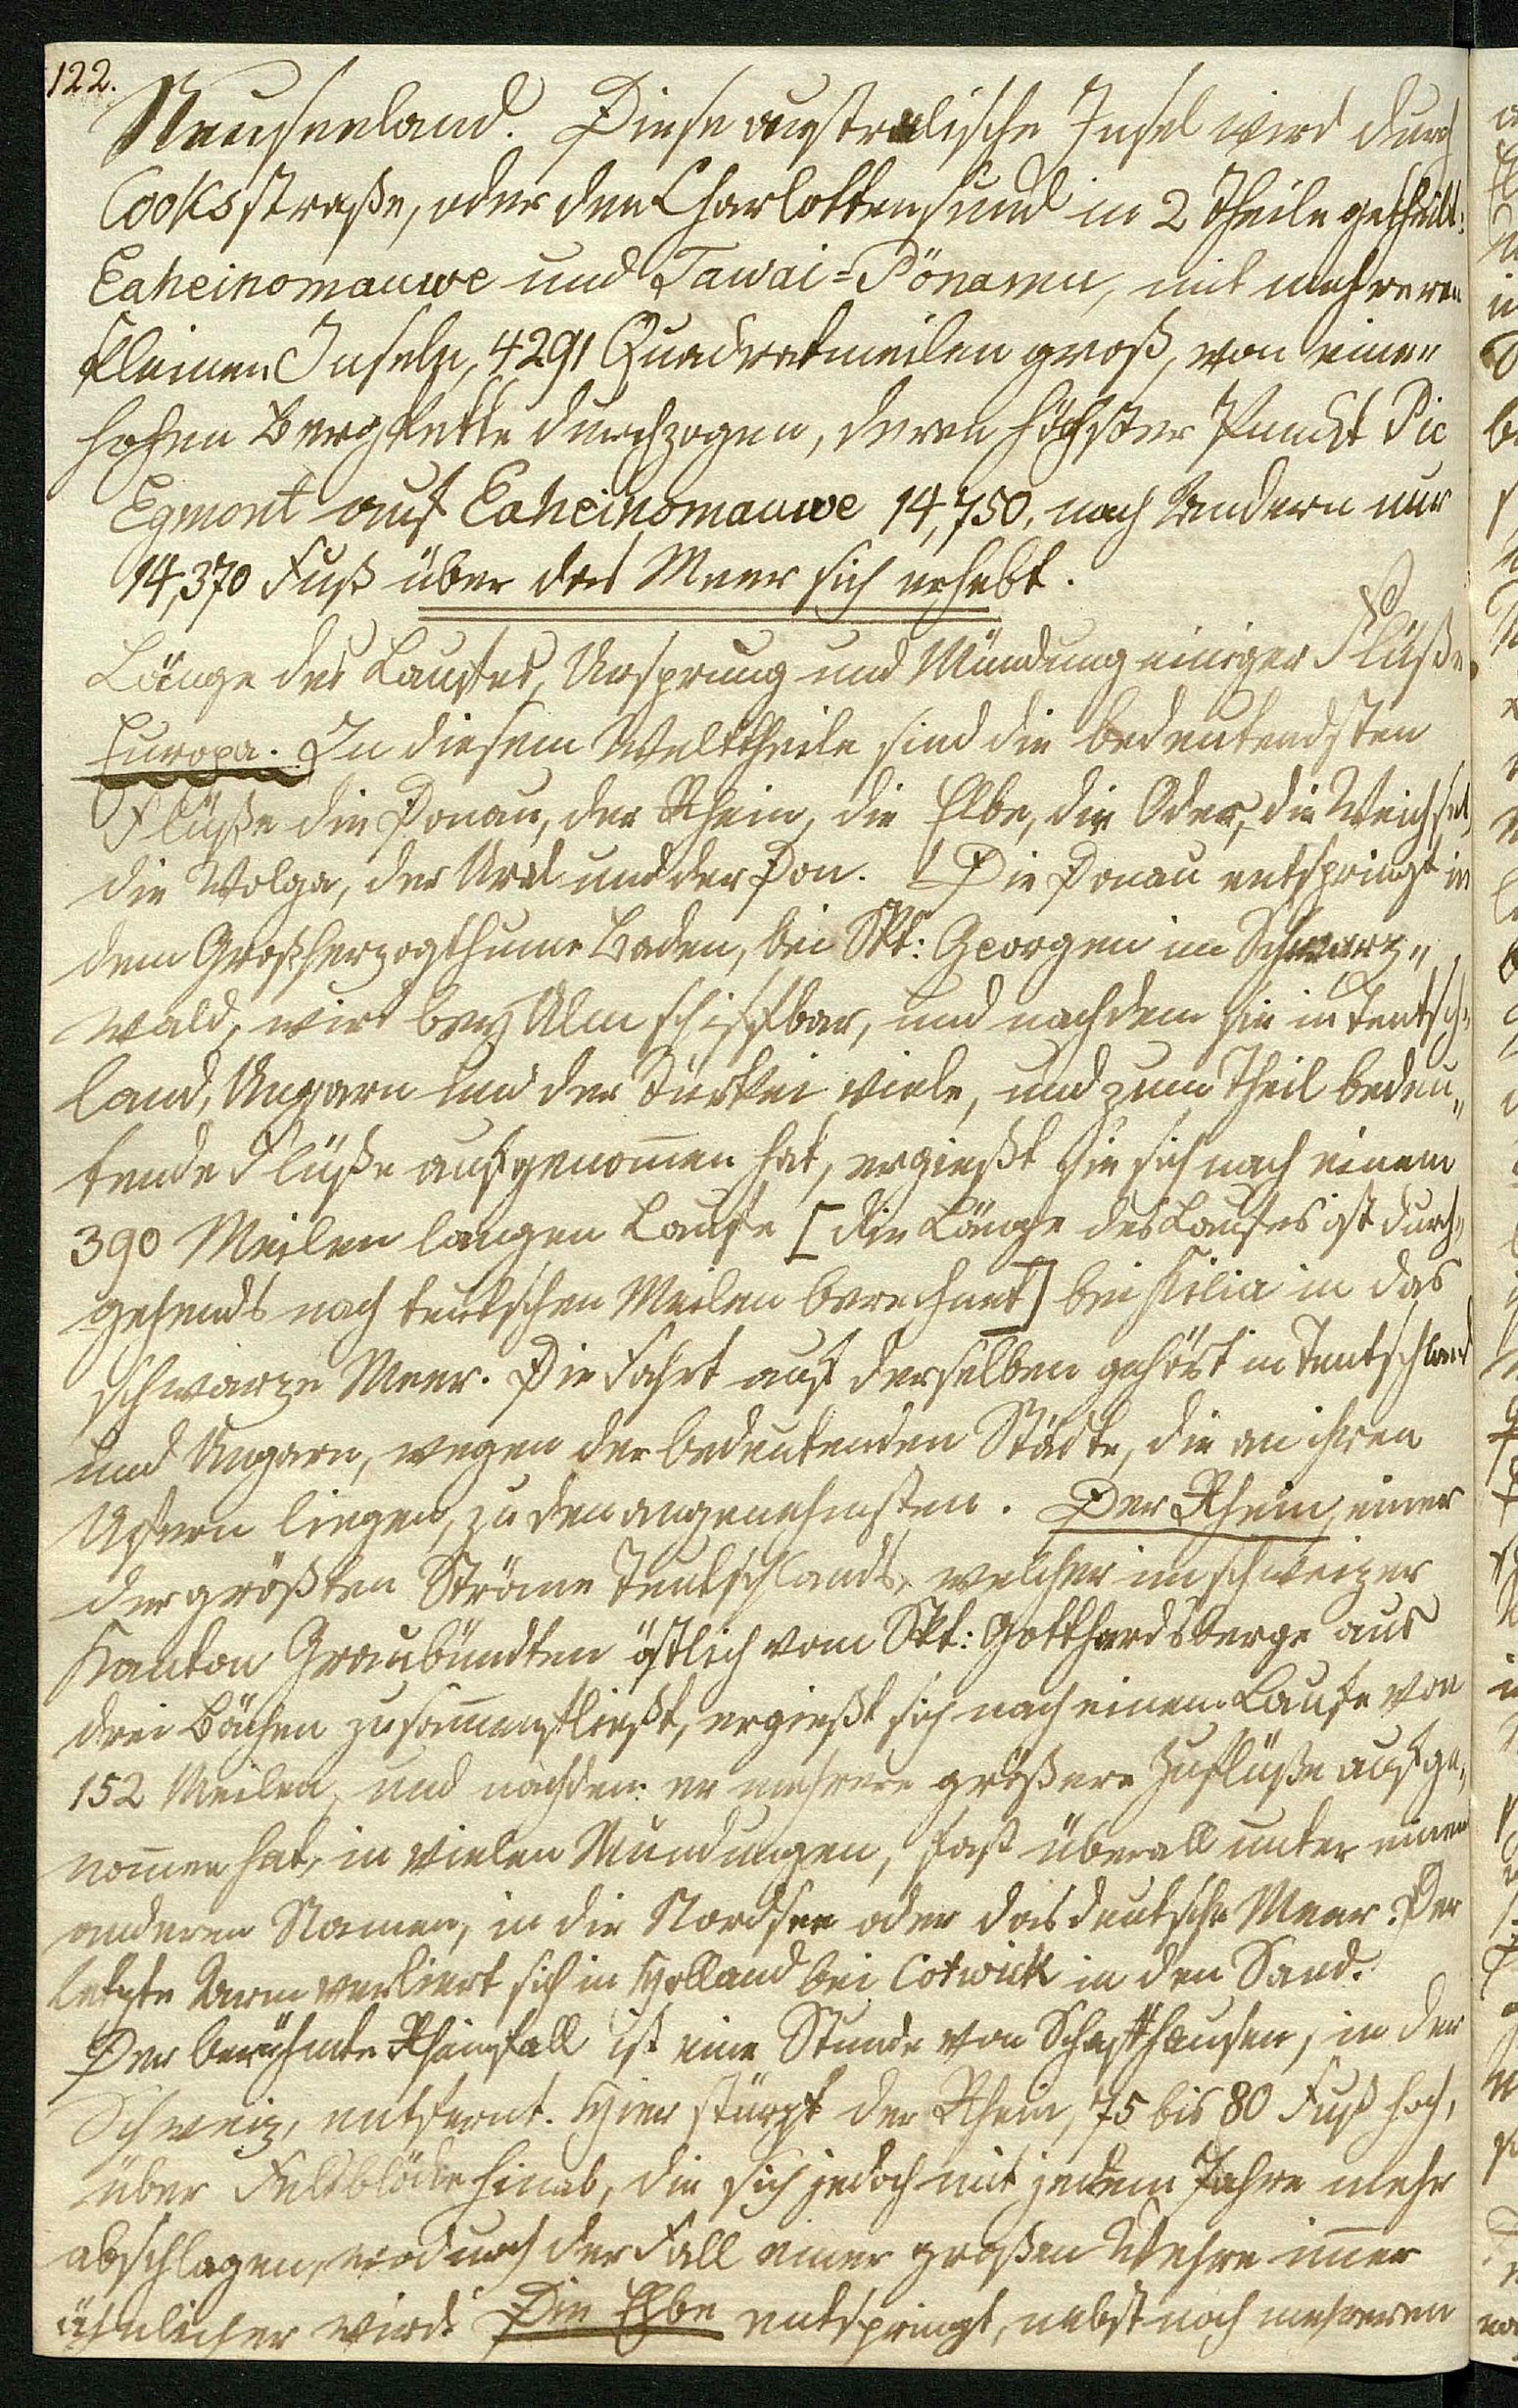 122.
Neuseeland. Diese australische Insel wird durch
Cooksstraße, oder den Charlottensund in 2 Theile getheilt:
Eaheinomauwe und Tawai-Pönamu, mit mehreren
kleinen Inseln, 4291 Quadratmeilen groß, von einer
hohen Bergkette durchzogen, deren höchster Punckt Pic
Egmont auf Eaheinomauwe 14,750, nach Andern nur
14,370 Fuß über das Meer sich erhebt.
Länge des Laufes, Ursprung und Mündung einiger Flüße.
Europa. In diesem Welttheile sind die bedeutendsten
Flüße die Donau, der Rhein, die Elbe, die Oder, die Weichsel,
die Wolga, der Ural und der Don. Die Donau entspringt in
dem Großherzogthume Baden, bei Skt: Georgen im Schwarz„
wald, wird bey Ulm schiffbar, und nachdem sie in Teutsch„
land, Ungarn und der Türkei viele, und zum Theil bedeu„
tende Flüße aufgenom̄en hat, ergießt sie sich nach einem
390 Meilen langen Laufe [die Länge des Laufes ist durch„
gehends nach teutschen Meilen berechnet] bei Kilia in das
schwarze Meer. Die Fahrt auf derselben gehört in Teutschland
und Ungarn, wegen der bedeutenden Städte, die an ihren
Ufern liegen, zu den angenehmsten. Der Rhein, einer
der größten Ströme Teutschlands, welcher im schweizer
Kanton Graubündten östlich vom Skt: Gotthardsberge aus
drei Bächen zusam̄enfließt, ergießt sich nach einem Laufe von
152 Meilen, und nachdem er mehrere größere Zuflüße aufge„
nom̄en hat, in vielen Mündungen, fast überall unter einem
anderen Namen, in die Nordsee oder das deutsche Meer. Der
letzte Arm verliert sich in Holland bei Cotwick in den Sand.
Der berühmte Rheinfall ist eine Stunde von Schaffhausen, in der
Schweiz, entfernt. Hier stürzt der Rhein, 75 bis 80 Fuß hoch,
über Felsblöcke hinab, die sich jedoch mit jedem Jahre mehr
abschlagen, wodurch der Fall einer großen Wehre im̄er
ähnlicher wird. Die Elbe entspringt, nebst noch mehreren